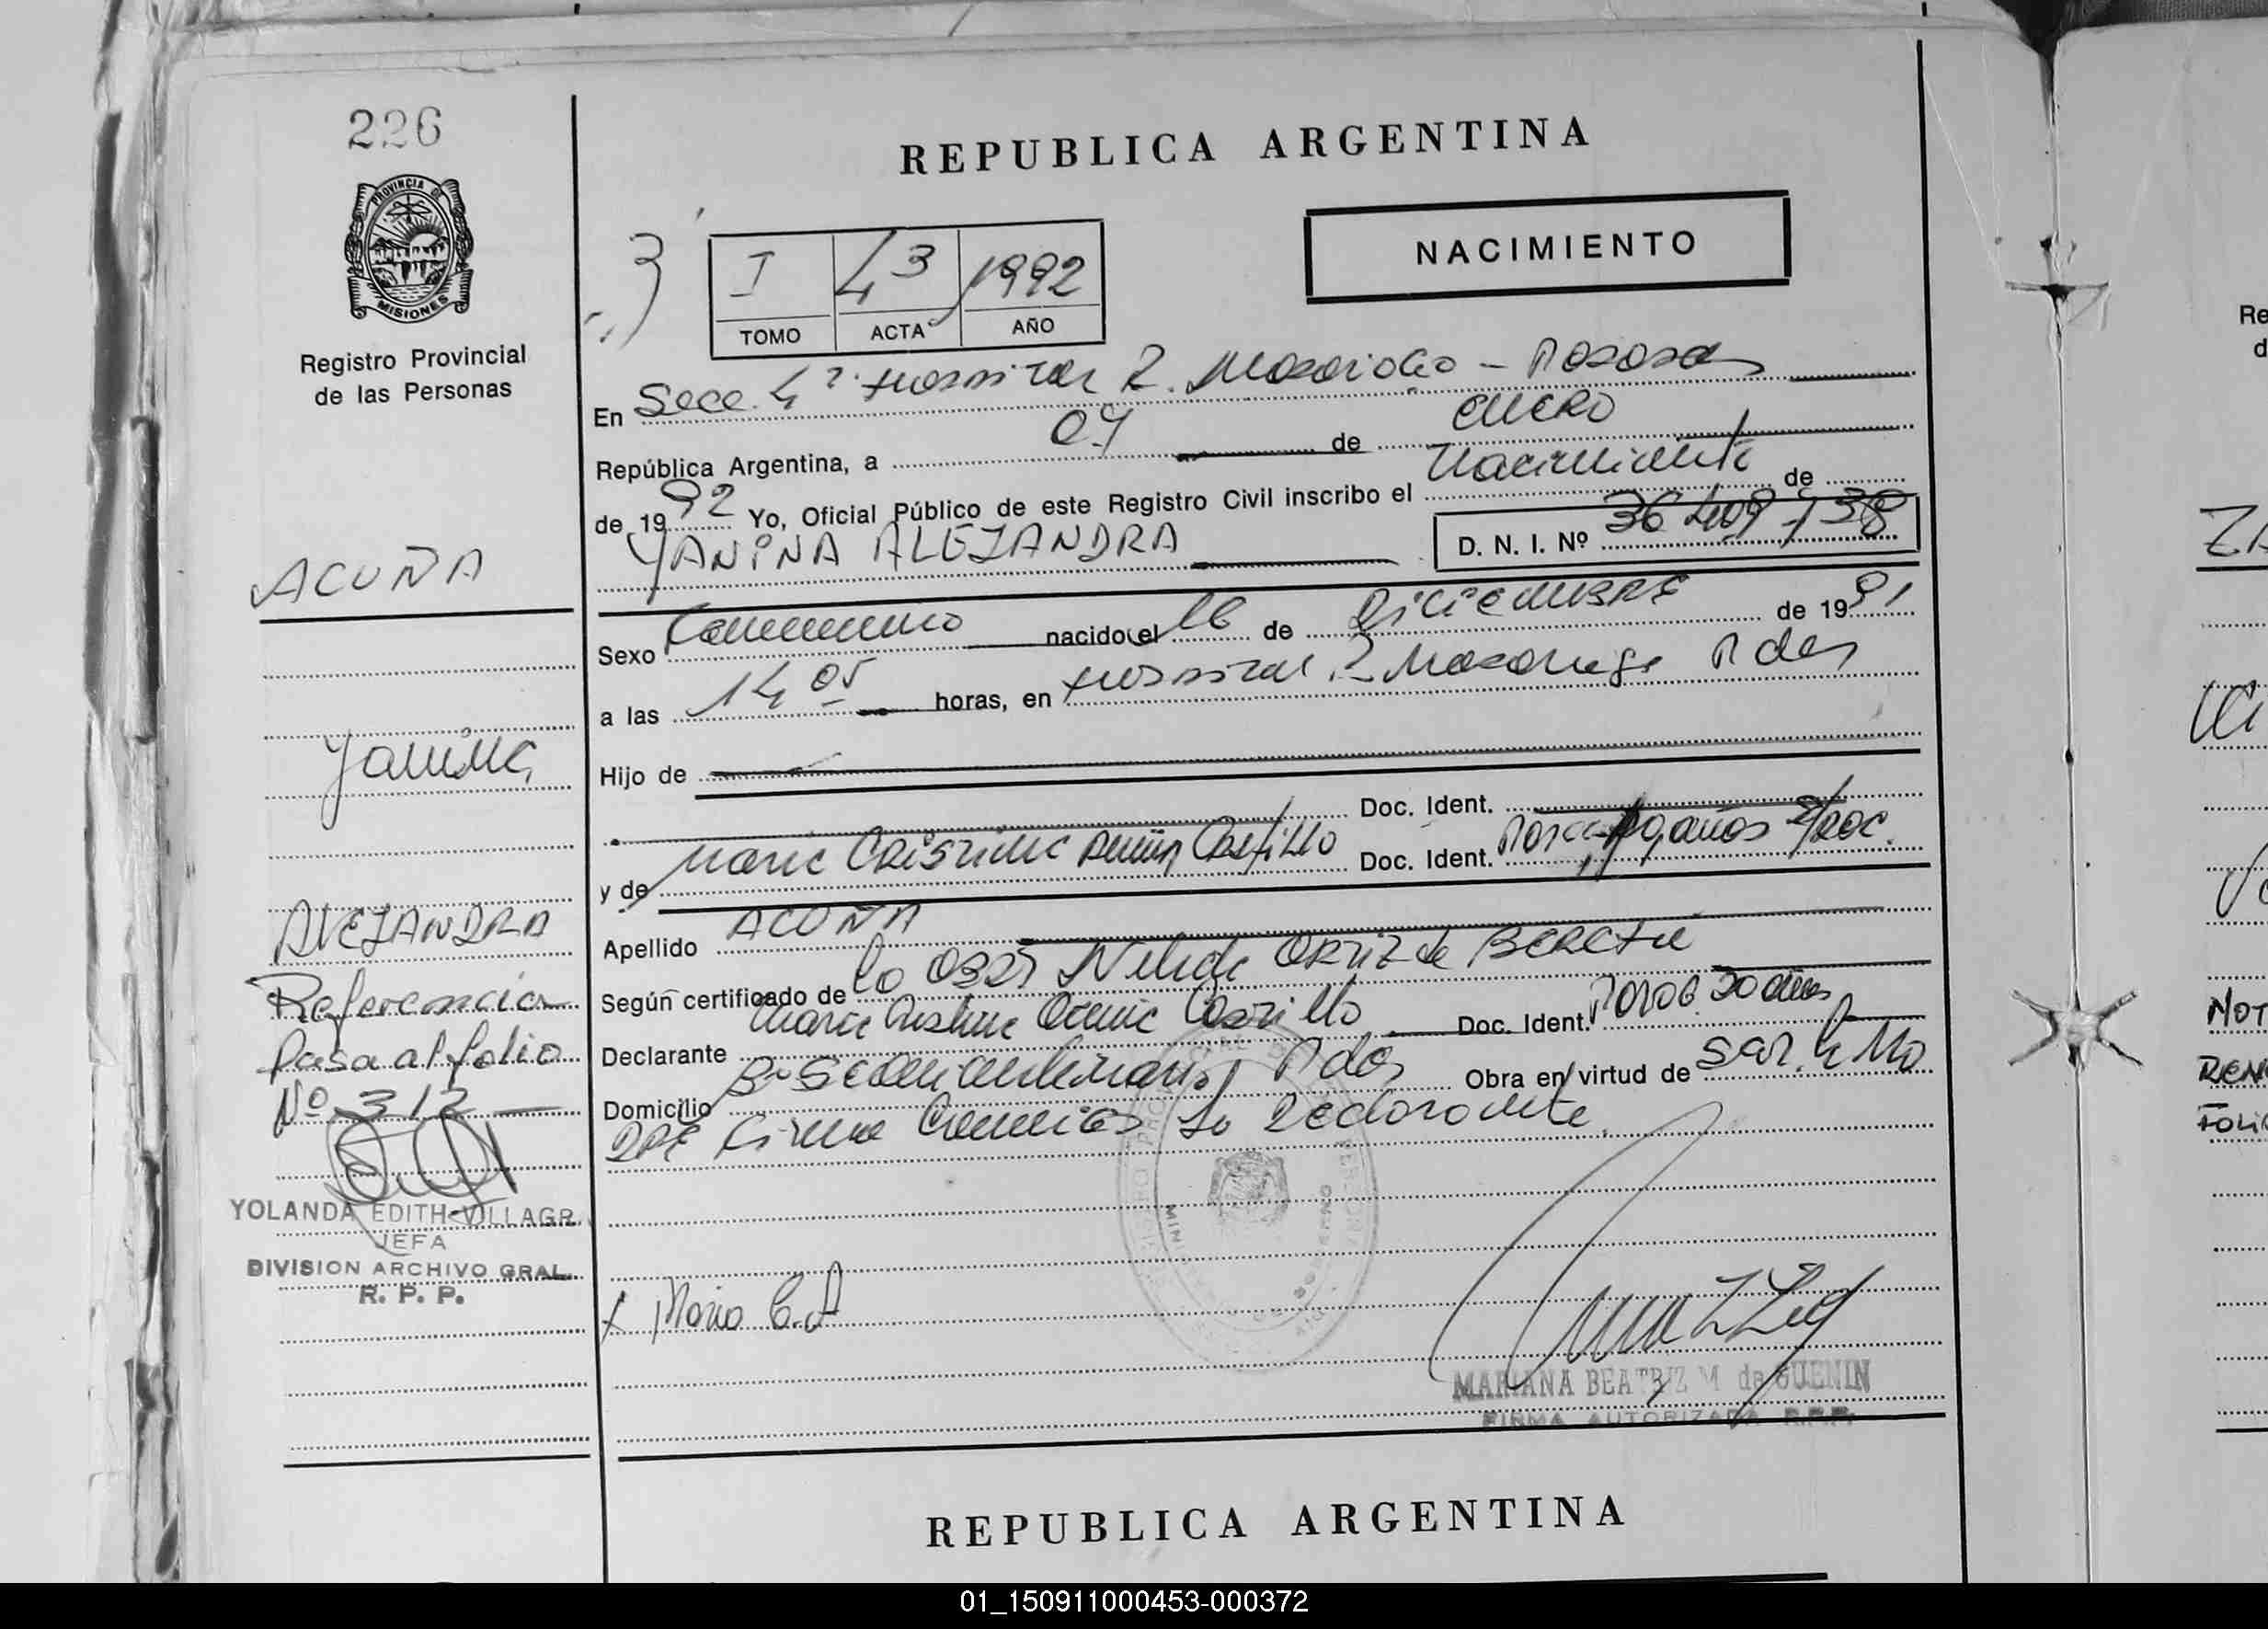 226
PROVINCIA DE
MISIONES
Registro Provincial
de las Personas
ACUÑA
Yanina
ALEJANDRA
Referencia
Pasa al folio
Nº 312
YOLANDA EDITH VILLAGR
JEFA
DIVISION ARCHIVO GRAL.
R. P. P.
REPUBLICA ARGENTINA
NACIMIENTO
I 43 1992
TOMO ACTA AÑO
En Secc. 4ª Hospital R. Madariaga - Posadas
República Argentina, a 07 de ENERO
de 1992 Yo, Oficial Público de este Registro Civil inscribo el Nacimiento de
YANINA ALEJANDRA D. N. I. Nº
Sexo Femenino nacido el 16 de DICIEMBRE de 1991
a las 14 05 horas, en Hospital R Madariaga Pdas
Hijo de
Doc. Ident.
y de Maria Cristina Acuña Castillo Doc. Ident. años
Apellido ACUÑA
Según certificado de la Obst Nelida Ortiz de
Declarante Maria Cristina Acuña Castillo Doc. Ident.
Domicilio Pdas Obra en virtud de ser la
QUE Firma la Declarante.
x Maria C. A
MARIANA BEATRIZ M de GUENIN
FIRMA AUTORIZADA R.P.P.
REPUBLICA ARGENTINA
Re
d
NOT
01_150911000453-000372